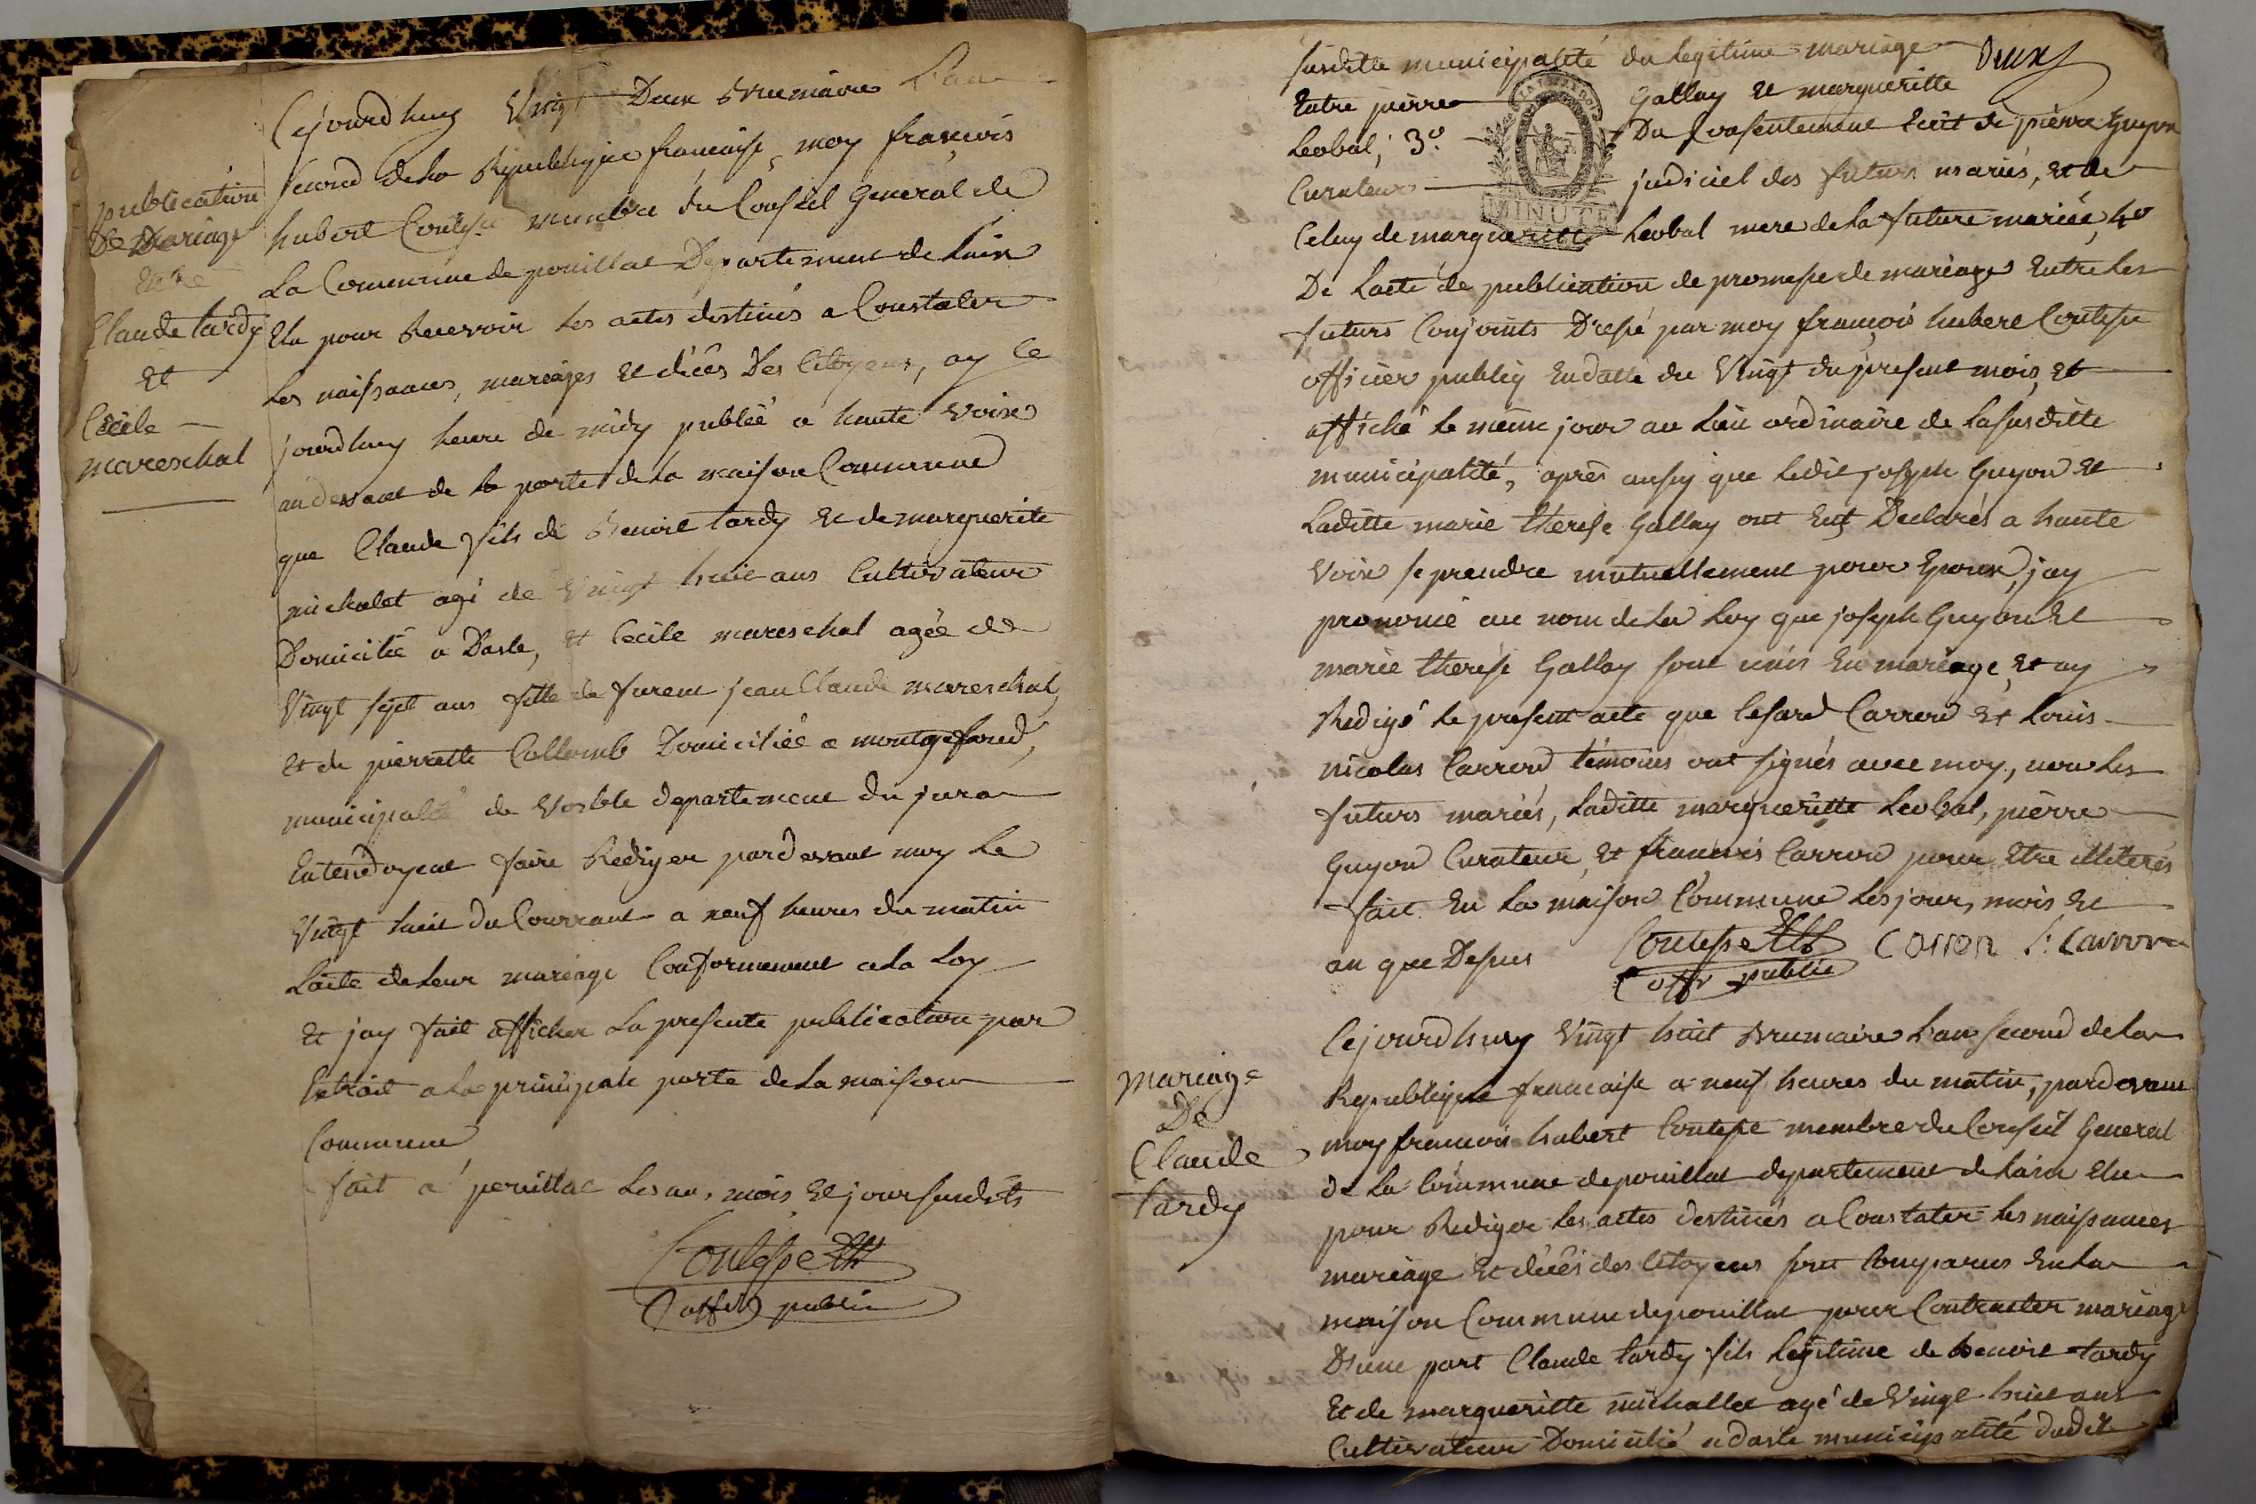 publication
De Mariage
Entre
Claude tardy
Et
Cécile
mareschal
Cejourdhuy Vingt Deux Brumaire L'an
second dela Republique francaise, moy francois
hubert Coutesse membre du Conseil General de
La Commune de pouillat Departement de Lain
Elu pour Recevoir les actes destinés a Constater
les naissances, mariages et décès Des Citoyens, ay Ce
jourdhuy heure de midy publié a haute voix
au devant de la porte de la maison Commune
que Claude fils de Benoit tardy et de marguerite
michalet agé de Vingt huit ans Cultivateur
Domicilié a Dasle, et Cecile mareschal agée de
Vingt sept ans fille de furent jean Claude mareschal,
et de pierrette Collomb Domiciliée a montgefond,
municipalité de Vosble departement du jura
Entendoyent faire Rediger pardevant moy le
Vingt huit du Courrant a neuf heures du matin
Lacte de leur mariage Conformement a la Loy
et jay fait afficher La presente publication par
Extrait a la principale porte de la maison
Commune
fait a pouillat Les an, mois et jour susdits
Coutesse
offr public
Deux
susditte municipalité du legitime mariage
Entre pierre Gallay et margueritte
Leobal, 3º Du Consentement Ecrit de pierre Guyon
Curateur judiciel des futurs mariés, et de
Celuy de margueritte Leobal mere de la future mariée, 4º
De Lacte de publication de promesse de mariage Entre les
futurs Conjoints Dressé par moy françois hubert Coutesse
officier public Endatte du Vingt du present mois, et
affiché le même jour au Lieu ordinaire de la susditte
municipalité, après aussy que Ledit joseph Guyon et
Laditte marie therese Gallay ont Eut Declarés a haute
Voix se prendre mutuellement pour Epoux, jay
prononcé au nom de la Loy que joseph Guyon et
marie therese Gallay sont unis En mariage, et ay
Redigé le present acte que Cesard Carron et Louis
nicolas Carrond témoins ont signés avec moy, non les
futurs mariés, Laditte margueritte Leobal, pierre
Guyon Curateur, et francois Carron pour Etre illiterés
fait En la maison Commune Les jour, mois et
an que Depus Coutesse Carron L: Carron
offr public
Mariage
De
Claude
tardy
Cejourdhuy Vingt huit Brumaire L'an second de la
Republique francaise a neuf heures du matin, pardevant
moy francois hubert Coutesse membre du Conseil General
de La Commune de pouillat departement de Lain Elu
pour Rediger les actes destinés a Constater les naissances
mariage et décès des Citoyens sont Comparus En la
maison Commune de pouillat pour Contracter mariage
D'une part Claude tardy fils Legitime de Benoit tardy
Et de margueritte michallet agé de Vingt huit ans
Cultivateur Domicilié a dasle municipalité dudit
MINUTE